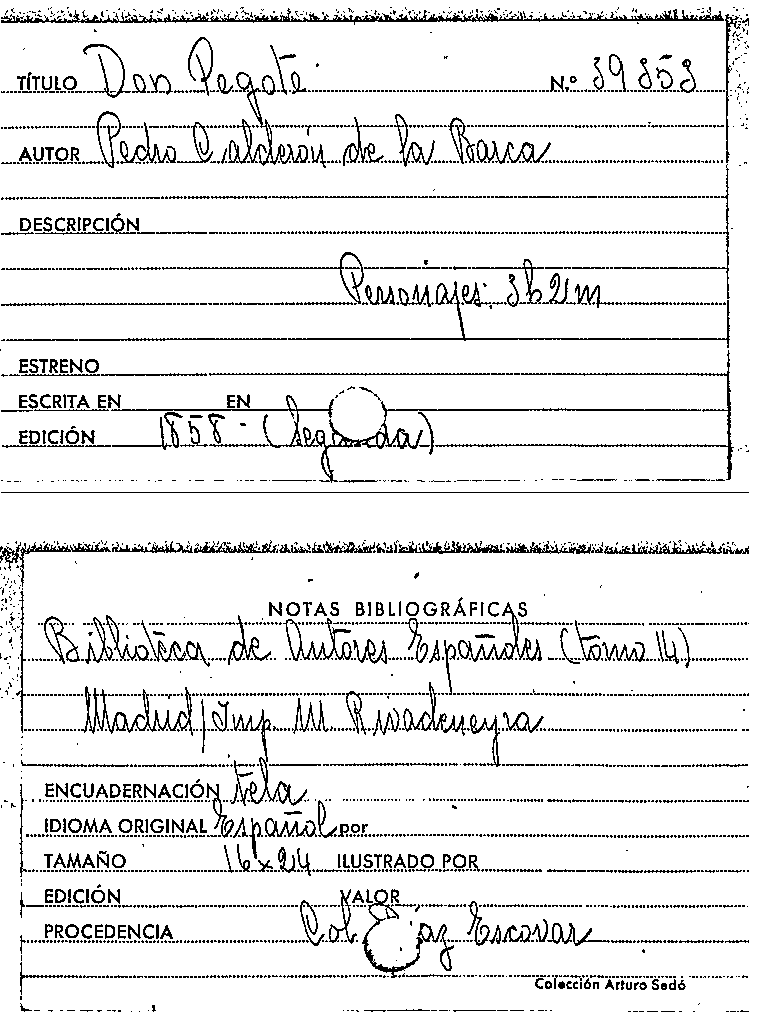 TÍTULO Don Pegote N.º 39353
AUTOR Pedro Calderón de la Barca
DESCRIPCIÓN
Personajes: 3h 2m
ESTRENO
ESCRITA EN EN
EDICIÓN 1858 - (Segunda)
NOTAS BIBLIOGRÁFICAS
Biblioteca de Autores Españoles (tomo 14)
Madrid/Imp. M. Rivadeneyra
ENCUADERNACIÓN tela
IDIOMA ORIGINAL Español por
TAMAÑO 16 x 24 ILUSTRADO POR
EDICIÓN VALOR
PROCEDENCIA Col. Díaz Escovar
Colección Arturo Sedó